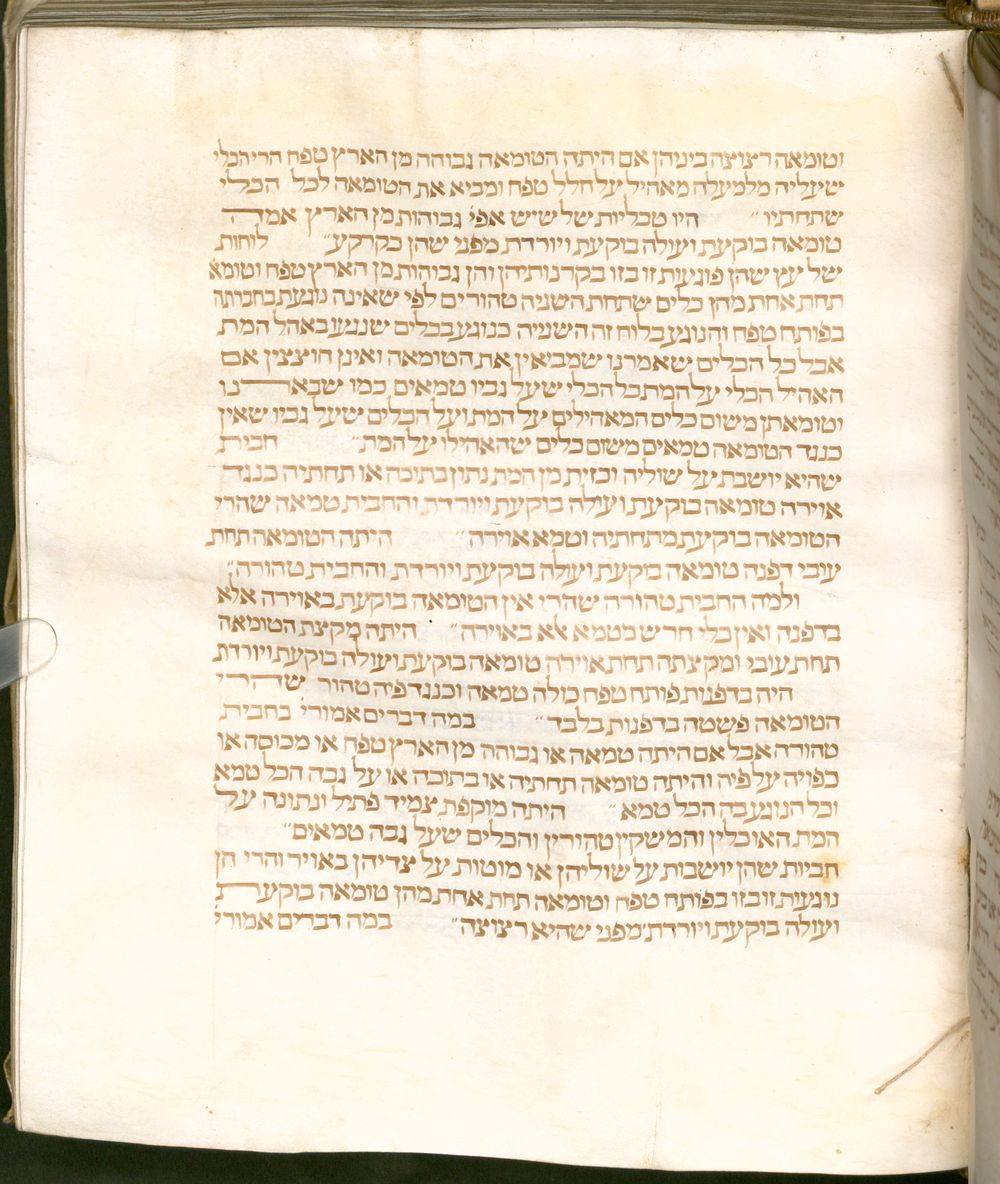 וטומאה רצוצה ביניהן אם היתה הטומאה גבוהה מן הארץ טפח הרי הכלי
שעליה מלמעלה מאהיל על חלל טפח ומביא את הטומאה לכל הכלי
שתחתיו״ היו טבליות של שיש אפי׳ גבוהות מן הארץ אמה
טומאה בוקעת ועולה בוקעת ויורדת מפני שהן כקרקע״ לוחות
של עץ שהן נוגעות זו בזו בקרנותיהן והן גבוהות מן הארץ טפח וטומא
תחת אחת מהן כלים שתחת השניה טהורים לפי שאינה נוגעת בחבירתה
בפותח טפח והנוגע בלוח זה השנייה כנוגע בכלים שנגעו באהל המת
אבל כל הכלים שאמרנו שמביאין את הטומאה ואינן חוצצין אם
האהיל הכלי על המת כל הכלי׳ שעל גביו טמאים כמו שבארנו
וטומאתן משום כלים המאהילים על המת ועל הכלים שעל גביו שאין
כנגד הטומאה טמאים משום כלים שהאהילו על המת״ חבית
שהיא יושבת על שוליה וכזית מן המת נתון בתוכה או תחתיה כנגד
אוירה טומאה בוקעת ועולה בוקעת ויורדת והחבית טמאה שהרי
הטומאה בוקעת מתחתיה וטמא אוירה״ היתה הטומאה תחת
עובי דפנה טומאה בוקעת ועולה בוקעת ויורדת והחבית טהורה״
ולמה החבית טהורה שהרי אין הטומאה בוקעת באוירה אלא
בדפנה ואין כלי חרש מטמא אלא באוירה״ היתה מקצת הטומאה
תחת עוביו ומקצתה תחת אוירה טומאה בוקעת ועולה בוקעת ויורדת
היה בדפנות פותח טפח כולה טמאה וכנגד פיה טהור שהרי
הטומאה פשטה בדפנות בלבד״ במה דברים אמורי׳ בחבית
טהורה אבל אם היתה טמאה או גבוהה מן הארץ טפח או מכוסה או
כפויה על פיה והיתה טומאה תחתיה או בתוכה או על גבה הכל טמא
וכל הנוגע בה הכל טמא״ היתה מוקפת צמיד פתיל ונתונה על
המת האוכלין והמשקין טהורין והכלים שעל גבה טמאים״
חביות שהן יושבות על שוליהן או מוטות על צדיהן באויר והרי הן
נוגעות זו בזו בפותח טפח וטומאה תחת אחת מהן טומאה בוקעת
ועולה בוקעת ויורדת מפני שהיא רצוצה״ במה דברים אמורי׳